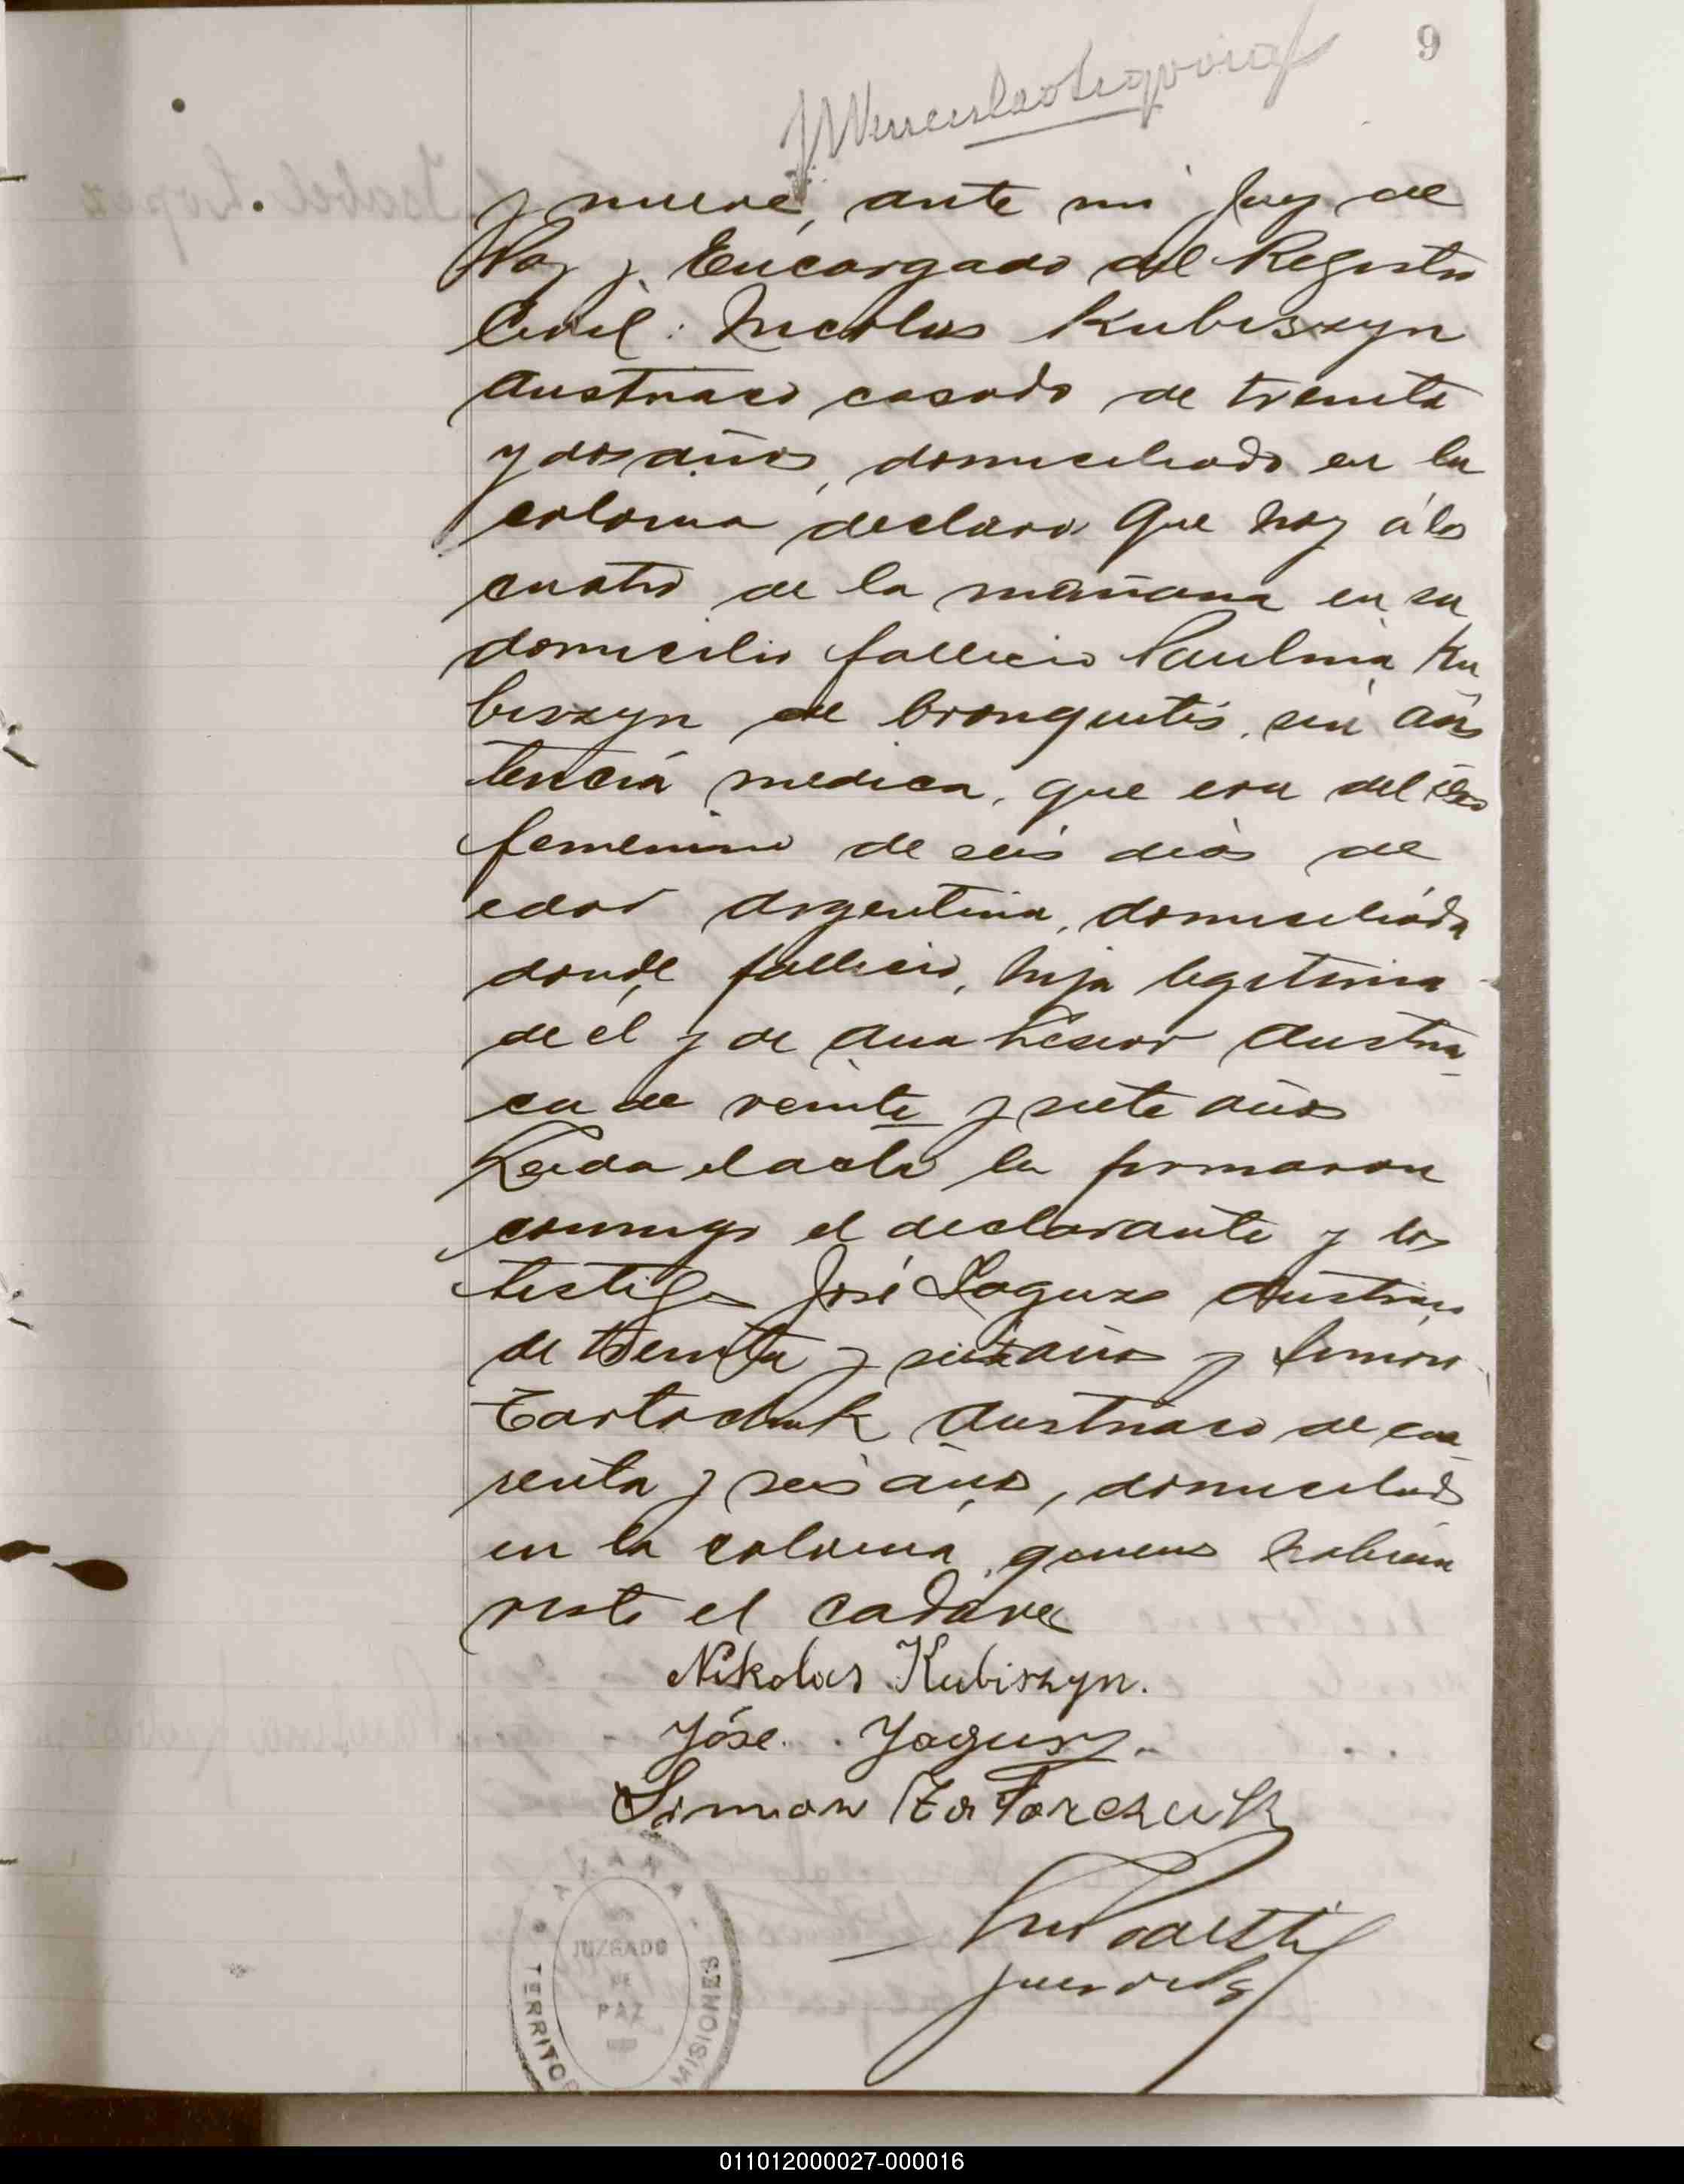 9
y nueve, ante mi Juez de
Paz y Encargado del Registro
Civil: Nicolas Kubiszyn
austriaco casado de treinta
y dos años, domiciliado en la
colonia declaro que hoy á las
cuatro de la mañana en su
domicilio fallecio Paulina Ku
biszyn de bronquitis, sin asis
tencia medica, que era del sexo
femenino de seis dias de
edad argentina, domiciliada
donde fallecio, hija legitima
de él y de Ana austria
ca de veinte y siete años
Leida el acta la firmaron
conmigo el declarante y los
testigos José Jagusz austriaco
de treinta y años y Simon
Tartochuk austriaco de cua
renta y seis años, domiciliados
en la colonia quienes habian
visto el cadaver
Nikolas Kubiszyn.
Jóse Jagusz.
Simion Tatarczuk
juez de Paz
JUZGADO
DE
PAZ
TERRITO
MISIONES
011012000027-000016